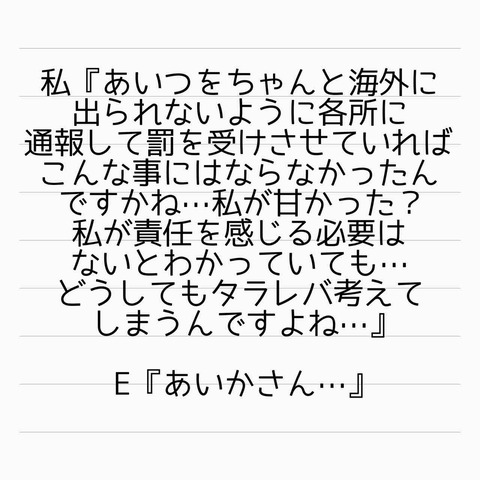 私『あいつをちゃんと海外に
出られないように各所に
通報して罰を受けさせていれば
こんな事にはならなかったん
ですかね…私が甘かった？
私が責任を感じる必要は
ないとわかっていても…
どうしてもタラレバ考えて
しまうんですよね…』
E『あいかさん…』